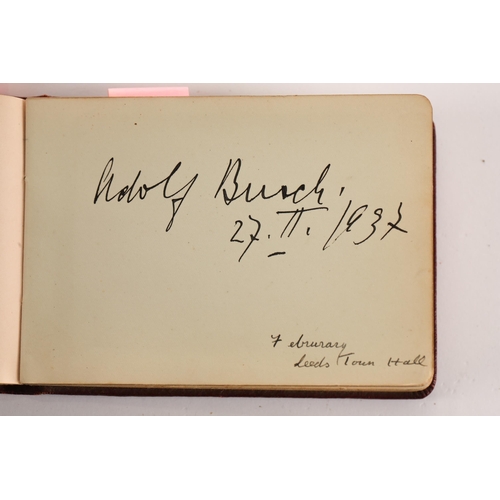 Adolf Busch.
27. II. 1937
Februrary
Leeds Town Hall